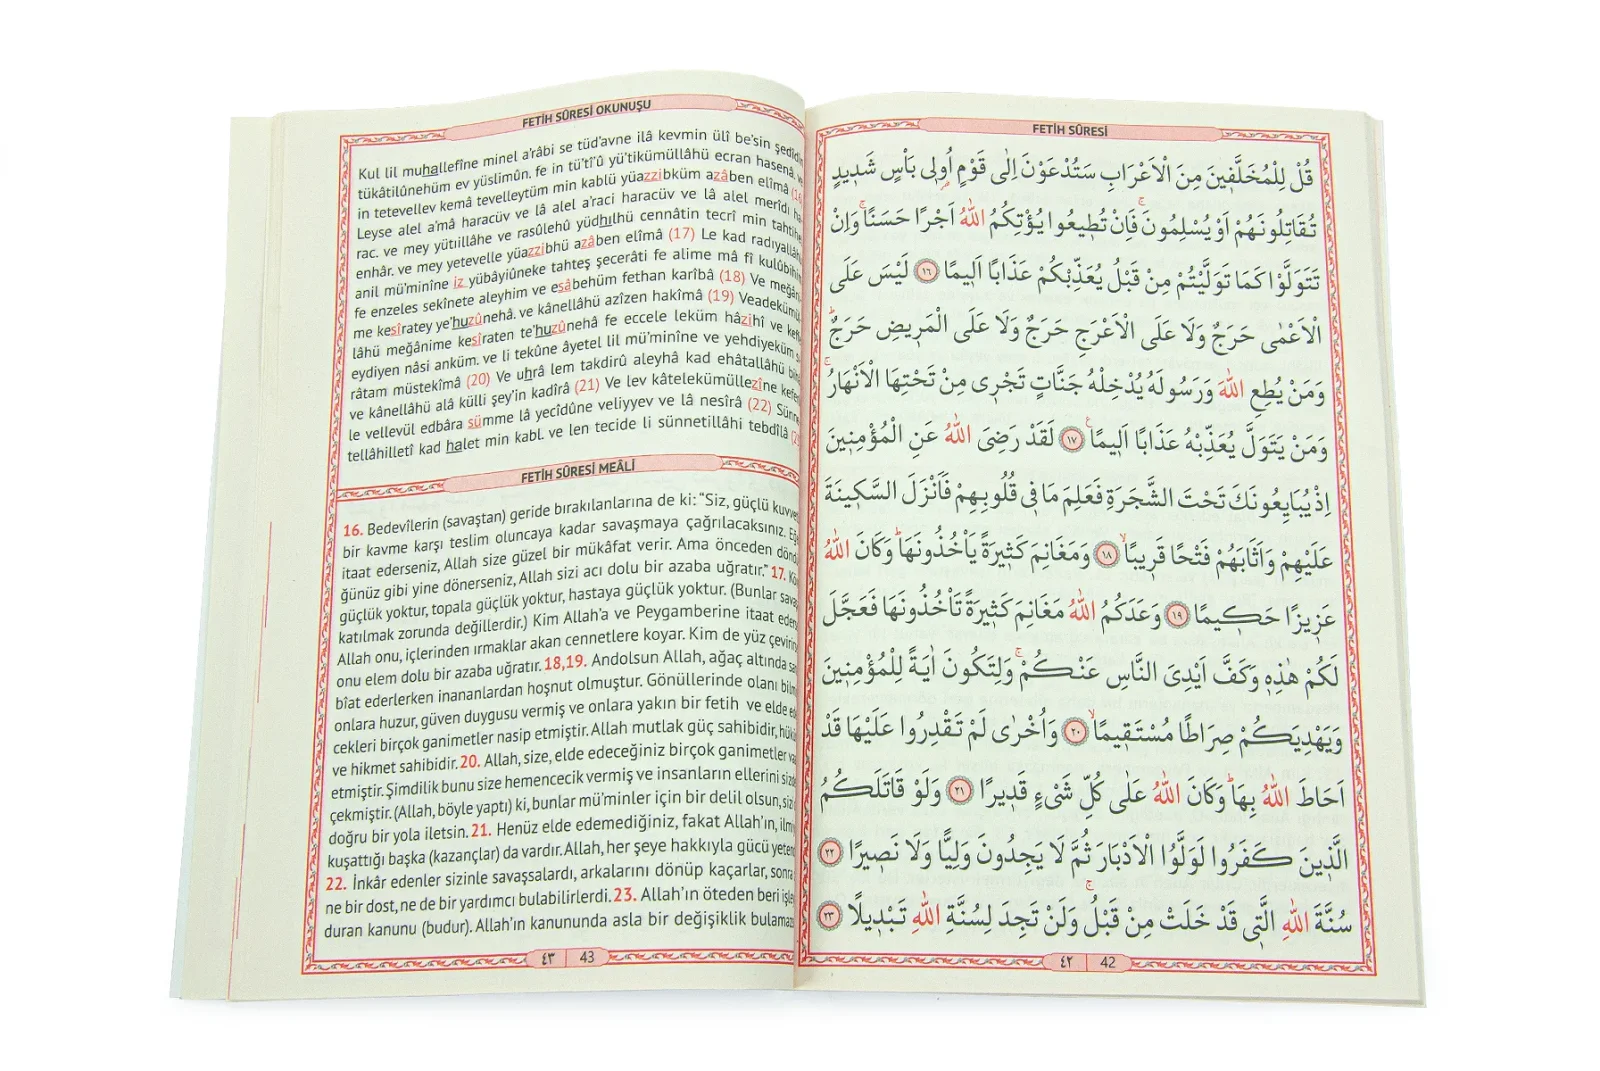 FETİH SÛRESİ OKUNUŞU
Kul lil muhallefîne minel a'râbi se tüd'avne ilâ kevmin ülî be'sin şedîdin
tükâtilûnehüm ev yüslimûn. fe in tü'tî'û yü'tikümüllâhü ecran hasenâ. ve
in tetevellev kemâ tevelleytüm min kablü yüazzibküm azâben elîmâ (16)
Leyse alel a'mâ haracüv ve lâ alel a'raci haracüv ve lâ alel merîdı ha
rac. ve mey yütıillâhe ve rasûlehû yüdhılhü cennâtin tecrî min tahtihel
enhâr. ve mey yetevelle yüazzibhü azâben elîmâ (17) Le kad radıyallâhü
anil mü'minîne iz yübâyiûneke tahteş şecerâti fe alime mâ fî kulûbihim
fe enzeles sekînete aleyhim ve esâbehüm fethan karîbâ (18) Ve meğâni
me kesîratey ye'huzûnehâ. ve kânellâhü azîzen hakîmâ (19) Veadekümül
lâhü meğânime kesîraten te'huzûnehâ fe eccele leküm hâzihî ve keffe
eydiyen nâsi anküm. ve li tekûne âyetel lil mü'minîne ve yehdiyeküm sı
râtam müstekîmâ (20) Ve uhrâ lem takdirû aleyhâ kad ehâtallâhü bihâ
ve kânellâhü alâ külli şey'in kadîrâ (21) Ve lev kâtelekümüllezîne keferû
le vellevül edbâra sümme lâ yecîdûne veliyyev ve lâ nesîrâ (22) Sünne
tellâhilletî kad halet min kabl. ve len tecide li sünnetillâhi tebdîlâ (23)
FETİH SÛRESİ MEÂLİ
16. Bedevîlerin (savaştan) geride bırakılanlarına de ki: "Siz, güçlü kuvvetli
bir kavme karşı teslim oluncaya kadar savaşmaya çağrılacaksınız. Eğer
itaat ederseniz, Allah size güzel bir mükâfat verir. Ama önceden döndü
ğünüz gibi yine dönerseniz, Allah sizi acı dolu bir azaba uğratır." 17. Köre
güçlük yoktur, topala güçlük yoktur, hastaya güçlük yoktur. (Bunlar savaşa
katılmak zorunda değillerdir.) Kim Allah'a ve Peygamberine itaat ederse
Allah onu, içlerinden ırmaklar akan cennetlere koyar. Kim de yüz çevirirse
onu elem dolu bir azaba uğratır. 18,19. Andolsun Allah, ağaç altında sana
bîat ederlerken inananlardan hoşnut olmuştur. Gönüllerinde olanı bilmiş
onlara huzur, güven duygusu vermiş ve onlara yakın bir fetih ve elde ede
cekleri birçok ganimetler nasip etmiştir. Allah mutlak güç sahibidir, hüküm
ve hikmet sahibidir. 20. Allah, size, elde edeceğiniz birçok ganimetler vaad
etmiştir. Şimdilik bunu size hemencecik vermiş ve insanların ellerini sizden
çekmiştir. (Allah, böyle yaptı) ki, bunlar mü'minler için bir delil olsun, sizi
doğru bir yola iletsin. 21. Henüz elde edemediğiniz, fakat Allah'ın, ilmiyle
kuşattığı başka (kazançlar) da vardır. Allah, her şeye hakkıyla gücü yetendir.
22. İnkâr edenler sizinle savaşsalardı, arkalarını dönüp kaçarlar, sonra
ne bir dost, ne de bir yardımcı bulabilirlerdi. 23. Allah'ın öteden beri işleye
duran kanunu (budur). Allah'ın kanununda asla bir değişiklik bulamazsın
٤٣ 43
FETİH SÛRESİ
قُلْ لِلْمُخَلَّفٖينَ مِنَ الْاَعْرَابِ سَتُدْعَوْنَ اِلٰى قَوْمٍ اُولٖى بَأْسٍ شَدٖيدٍ
تُقَاتِلُونَهُمْ اَوْ يُسْلِمُونَۚ فَاِنْ تُطٖيعُوا يُؤْتِكُمُ اللّٰهُ اَجْرًا حَسَنًاۚ وَاِنْ
تَتَوَلَّوْا كَمَا تَوَلَّيْتُمْ مِنْ قَبْلُ يُعَذِّبْكُمْ عَذَابًا اَلٖيمًا ١٦ لَيْسَ عَلَى
الْاَعْمٰى حَرَجٌ وَلَا عَلَى الْاَعْرَجِ حَرَجٌ وَلَا عَلَى الْمَرٖيضِ حَرَجٌؕ
وَمَنْ يُطِعِ اللّٰهَ وَرَسُولَهُ يُدْخِلْهُ جَنَّاتٍ تَجْرٖى مِنْ تَحْتِهَا الْاَنْهَارُۚ
وَمَنْ يَتَوَلَّ يُعَذِّبْهُ عَذَابًا اَلٖيمًاۚ ١٧ لَقَدْ رَضِىَ اللّٰهُ عَنِ الْمُؤْمِنٖينَ
اِذْ يُبَايِعُونَكَ تَحْتَ الشَّجَرَةِ فَعَلِمَ مَا فٖى قُلُوبِهِمْ فَاَنْزَلَ السَّكٖينَةَ
عَلَيْهِمْ وَاَثَابَهُمْ فَتْحًا قَرٖيبًاۙ ١٨ وَمَغَانِمَ كَثٖيرَةً يَأْخُذُونَهَاؕ وَكَانَ اللّٰهُ
عَزٖيزًا حَكٖيمًا ١٩ وَعَدَكُمُ اللّٰهُ مَغَانِمَ كَثٖيرَةً تَأْخُذُونَهَا فَعَجَّلَ
لَكُمْ هٰذِهٖ وَكَفَّ اَيْدِىَ النَّاسِ عَنْكُمْۚ وَلِتَكُونَ اٰيَةً لِلْمُؤْمِنٖينَ
وَيَهْدِيَكُمْ صِرَاطًا مُسْتَقٖيمًاۙ ٢٠ وَاُخْرٰى لَمْ تَقْدِرُوا عَلَيْهَا قَدْ
اَحَاطَ اللّٰهُ بِهَاؕ وَكَانَ اللّٰهُ عَلٰى كُلِّ شَىْءٍ قَدٖيرًا ٢١ وَلَوْ قَاتَلَكُمُ
الَّذٖينَ كَفَرُوا لَوَلَّوُا الْاَدْبَارَ ثُمَّ لَا يَجِدُونَ وَلِيًّا وَلَا نَصٖيرًا ٢٢
سُنَّةَ اللّٰهِ الَّتٖى قَدْ خَلَتْ مِنْ قَبْلُۚ وَلَنْ تَجِدَ لِسُنَّةِ اللّٰهِ تَبْدٖيلًا ٢٣
٤٢ 42